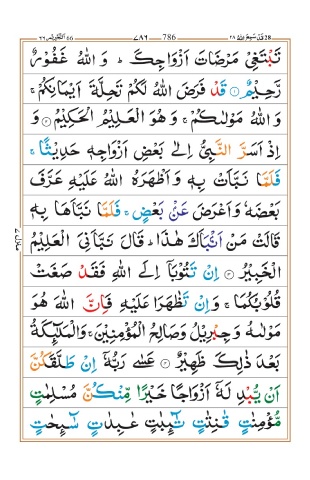 ٦٦ التحريم ٦٦ ٧٨٦ 786 قد سمع الله ٢٨ 28
تَبْتَغِيْ مَرْضَاتَ اَزْوَاجِكَ ؕ وَ اللّٰهُ غَفُوْرٌ
رَّحِيْمٌ ۝١ قَدْ فَرَضَ اللّٰهُ لَكُمْ تَحِلَّةَ اَيْمَانِكُمْ ۚ
وَ اللّٰهُ مَوْلٰىكُمْ ۚ وَ هُوَ الْعَلِيْمُ الْحَكِيْمُ ۝٢ وَ
اِذْ اَسَرَّ النَّبِيُّ اِلٰى بَعْضِ اَزْوَاجِهٖ حَدِيْثًا ۚ
فَلَمَّا نَبَّاَتْ بِهٖ وَ اَظْهَرَهُ اللّٰهُ عَلَيْهِ عَرَّفَ
بَعْضَهٗ وَ اَعْرَضَ عَنْۢ بَعْضٍ ۚ فَلَمَّا نَبَّاَهَا بِهٖ
قَالَتْ مَنْ اَنْۢبَاَكَ هٰذَا ؕ قَالَ نَبَّاَنِيَ الْعَلِيْمُ
الْخَبِيْرُ ۝٣ اِنْ تَتُوْبَاۤ اِلَى اللّٰهِ فَقَدْ صَغَتْ
قُلُوْبُكُمَا ۚ وَ اِنْ تَظٰهَرَا عَلَيْهِ فَاِنَّ اللّٰهَ هُوَ
مَوْلٰىهُ وَ جِبْرِيْلُ وَ صَالِحُ الْمُؤْمِنِيْنَ ۚ وَ الْمَلٰٓئِكَةُ
بَعْدَ ذٰلِكَ ظَهِيْرٌ ۝٤ عَسٰى رَبُّهٗۤ اِنْ طَلَّقَكُنَّ
اَنْ يُّبْدِلَهٗۤ اَزْوَاجًا خَيْرًا مِّنْكُنَّ مُسْلِمٰتٍ
مُّؤْمِنٰتٍ قٰنِتٰتٍ تٰٓئِبٰتٍ عٰبِدٰتٍ سٰٓئِحٰتٍ